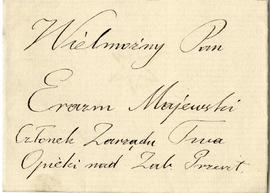 Wielmożny Pan
Erazm Majewski
Członek Zarządu Twa
Opieki nad Zab. Przeszł.